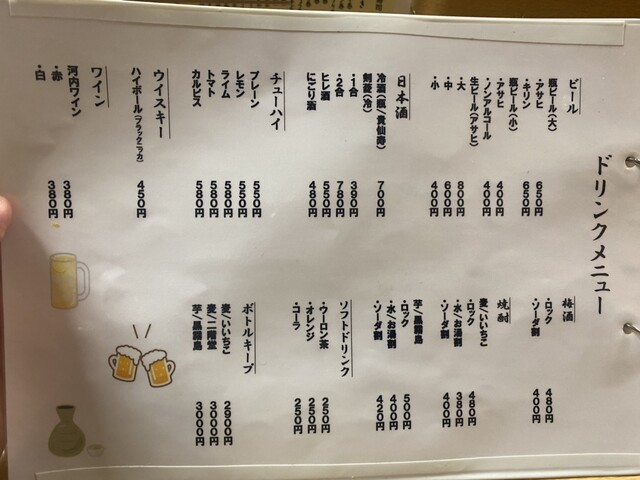 ドリンクメニュー
ビール
瓶ビール(大)
・アサヒ 650円
・キリン 650円
瓶ビール(小)
・アサヒ 400円
・ノンアルコール 400円
生ビール(アサヒ)
・大 800円
・中 600円
・小 400円
日本酒
冷酒(瓶/貴仙寿) 700円
剣菱(冷)
・1合 390円
・2合 780円
ヒレ酒 550円
にごり酒 480円
チューハイ
プレーン 550円
レモン 550円
ライム 580円
トマト 580円
カルピス 580円
ウイスキー
ハイボール(ブラックニッカ) 450円
ワイン
河内ワイン
・赤 380円
・白 380円
梅酒
・ロック 480円
・ソーダ割 400円
焼酎
麦/いいちこ
・ロック 480円
・水/お湯割 380円
・ソーダ割 400円
芋/黒霧島
・ロック 500円
・水/お湯割 400円
・ソーダ割 420円
ソフトドリンク
・ウーロン茶 250円
・オレンジ 250円
・コーラ 250円
ボトルキープ
麦/いいちこ 2900円
麦/二階堂 3000円
芋/黒霧島 3000円